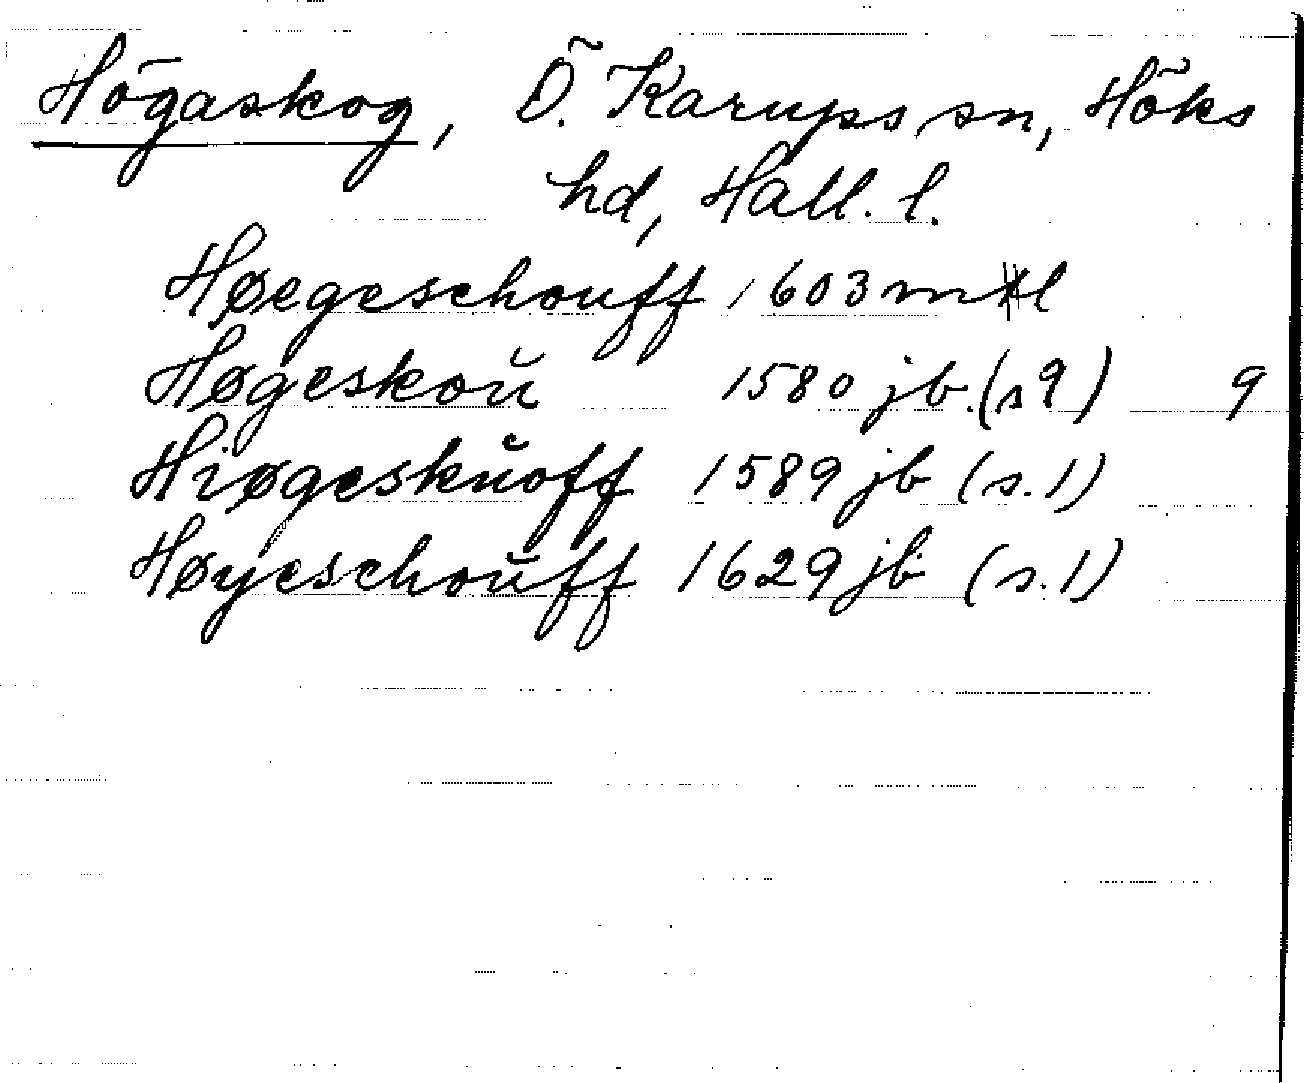 Högaskog, Ö. Karups sn, Höks
hd, Hall. l.
Høegeschouff 1603 mtl
Høgeskoŭ 1580 jb. (s 9) 9
Hiøgeskŭoff 1589 jb (s. 1)
Høyeschoŭff 1629 jb (s. 1)